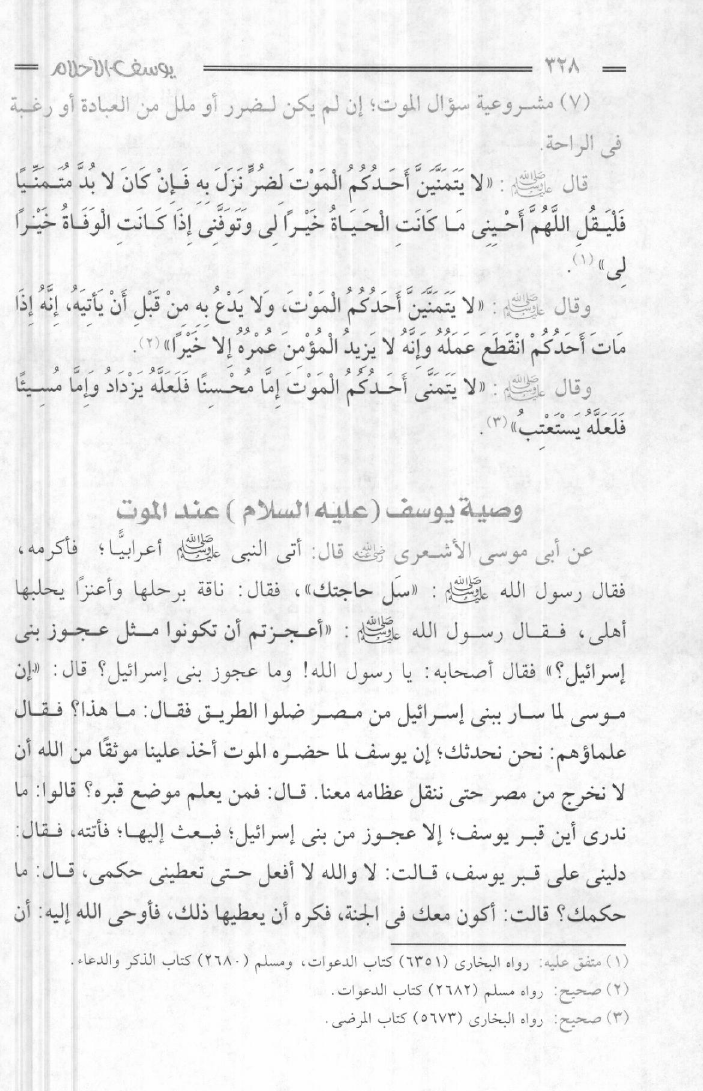 ٣٢٨ يوسف الأحلام
(٧) مشروعية سؤال الموت؛ إن لم يكن لضرر أو ملل من العبادة أو رغبة
فى الراحة.
قال ﷺ : «لا يَتَمَنَّيَنَّ أَحَدُكُمُ الْمَوْتَ لِضُرٍّ نَزَلَ بِهِ فَإِنْ كَانَ لا بُدَّ مُتَمَنِّيًا
فَلْيَقُلِ اللَّهُمَّ أَحْيِنِى مَا كَانَتِ الْحَيَاةُ خَيْرًا لِى وَتَوَفَّنِى إِذَا كَانَتِ الْوَفَاةُ خَيْرًا
لِى» (١).
وقال ﷺ : «لا يَتَمَنَّيَنَّ أَحَدُكُمُ الْمَوْتَ، وَلا يَدْعُ بِهِ مِنْ قَبْلِ أَنْ يَأْتِيَهُ، إِنَّهُ إِذَا
مَاتَ أَحَدُكُمْ انْقَطَعَ عَمَلُهُ وَإِنَّهُ لا يَزِيدُ الْمُؤْمِنَ عُمْرُهُ إِلا خَيْرًا» (٢).
وقال ﷺ : «لا يَتَمَنَّى أَحَدُكُمُ الْمَوْتَ إِمَّا مُحْسِنًا فَلَعَلَّهُ يَزْدَادُ وَإِمَّا مُسِيئًا
فَلَعَلَّهُ يَسْتَعْتِبُ» (٣).
وصية يوسف (عليه السلام) عند الموت
عن أبى موسى الأشعرى رضي الله عنه قال: أتى النبى ﷺ أعرابيًّا؛ فأكرمه،
فقال رسول الله ﷺ : «سَل حاجتك»، فقال: ناقة برحلها وأعنزًا يحلبها
أهلى، فقال رسول الله ﷺ : «أعجزتم أن تكونوا مثل عجوز بنى
إسرائيل؟» فقال أصحابه: يا رسول الله! وما عجوز بنى إسرائيل؟ قال: «إن
موسى لما سار ببنى إسرائيل من مصر ضلوا الطريق فقال: ما هذا؟ فقال
علماؤهم: نحن نحدثك؛ إن يوسف لما حضره الموت أخذ علينا موثقًا من الله أن
لا نخرج من مصر حتى ننقل عظامه معنا. قال: فمن يعلم موضع قبره؟ قالوا: ما
ندرى أين قبر يوسف؛ إلا عجوز من بنى إسرائيل؛ فبعث إليها؛ فأتته، فقال:
دلينى على قبر يوسف، قالت: لا والله لا أفعل حتى تعطينى حكمى، قال: ما
حكمك؟ قالت: أكون معك فى الجنة، فكره أن يعطيها ذلك، فأوحى الله إليه: أن
(١) متفق عليه: رواه البخارى (٦٣٥١) كتاب الدعوات، ومسلم (٢٦٨٠) كتاب الذكر والدعاء.
(٢) صحيح: رواه مسلم (٢٦٨٢) كتاب الدعوات.
(٣) صحيح: رواه البخارى (٥٦٧٣) كتاب المرضى.